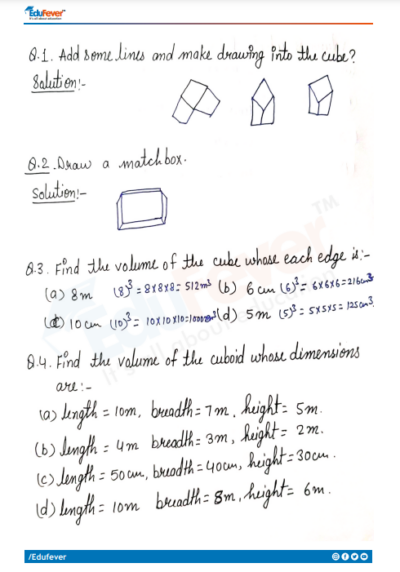 EduFever
Q.1. Add some lines and make drawing into the cube?
Solution:-
Q.2. Draw a matchbox.
Solution:-
TM
Q.3. Find the volume of the cube whose each edge is:-
(a) 8m (8)³ = 8x8x8 = 512m³ (b) 6cm (6)³ = 6x6x6 = 216cm³
(c) 10cm (10)³ = 10x10x10 = 1000cm³ (d) 5m (5)³ = 5x5x5 = 125cm³.
Q.4. Find the volume of the cuboid whose dimensions
are:-
(a) length = 10m, breadth = 7m, height = 5m.
(b) length = 4m breadth = 3m, height = 2m.
(c) length = 50cm, breadth = 40cm, height = 30cm.
(d) length = 10m breadth = 8m, height = 6m.
/Edufever